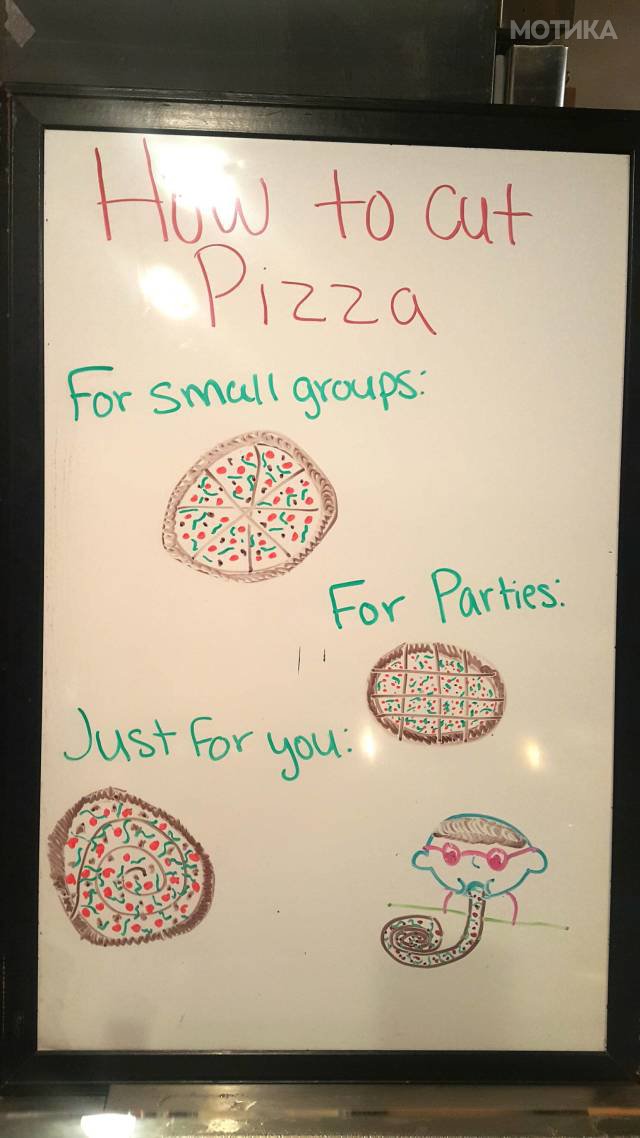 МОТИКА
How to cut
Pizza
For small groups:
For Parties:
Just for you: